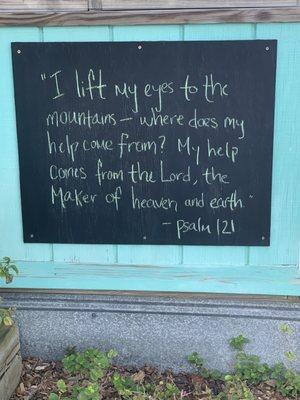 "I lift My eyes to the
mountains - where does my
help come from? My help
comes from the Lord, the
Maker of heaven and earth."
- psalm 121